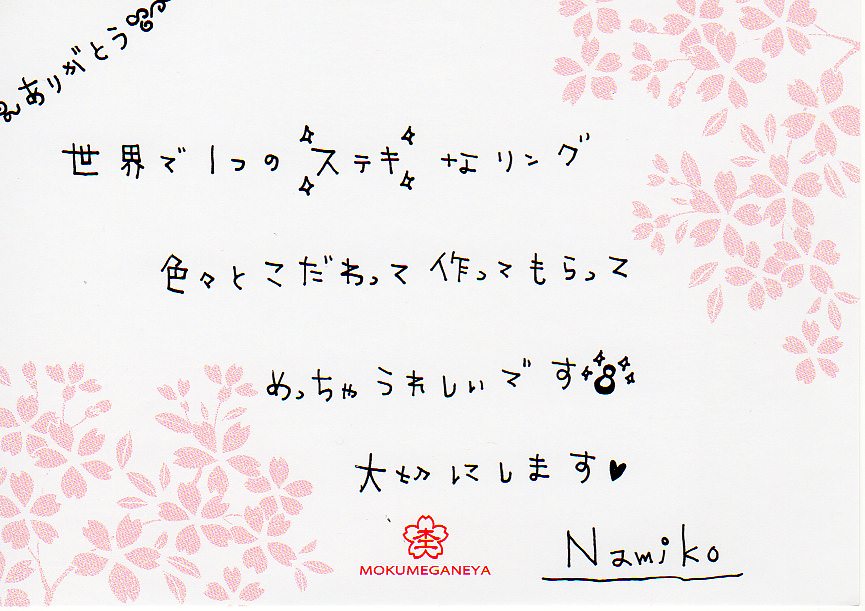 ありがとう
世界で1つのステキなリング
色々とこだわって作ってもらって
めっちゃうれしいです
大切にします♥
MOKUMEGANEYA
Namiko